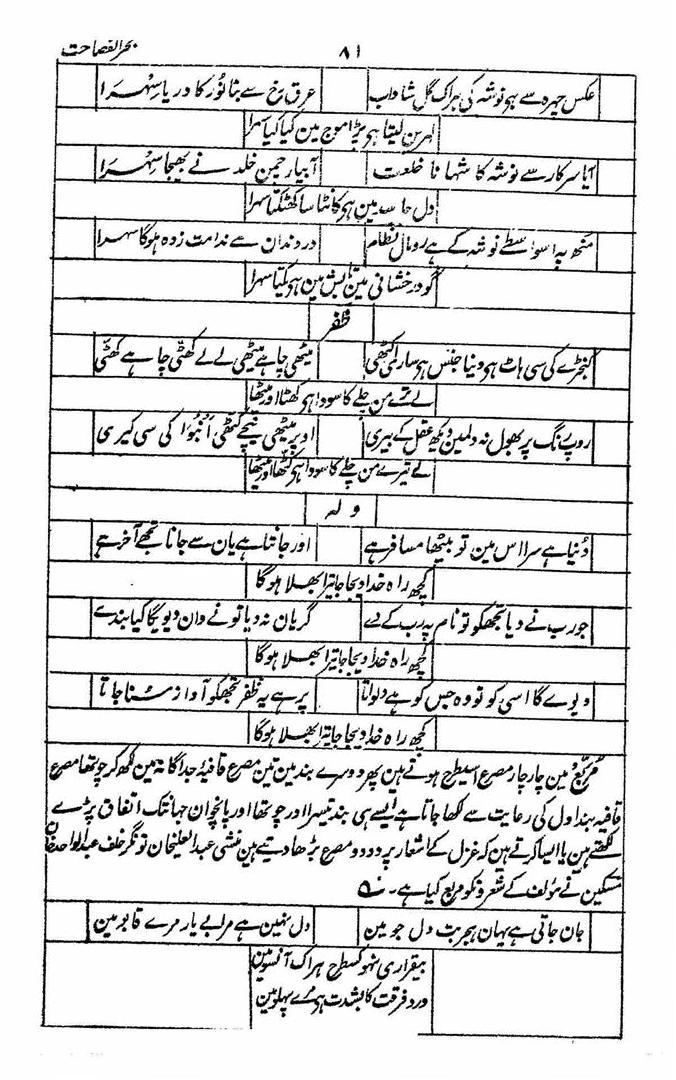 بحر الفصاحت
۸۱
عکس چہرہ سے ہو نوشہ کی ہر اک گل شاداب عرق رخ سے بنا نُور کا دریا سِہْرا
لہرین لیتا ہی پڑا موج مین کیا کیا سہرا
آیا سرکار سے نوشہ کا شہانا خلعت آبیار چمن خلد نے بھیجا سِہْرا
دل حاسد مین ہو کانٹا سا کھٹکتا سہرا
منھ پہ اسواسطے نوشہ کے ہے رومال نظام در دندان سے ندامت زدہ ہوگا سہرا
گو درخشانی مین تابش مین ہی یکتا سہرا
ظفر
کنجڑے کی سی ہاٹ ہی دنیا جنس ہی ساری کٹھی میٹھی چاہے میٹھی لے لے کھٹّی چاہے کھٹّی
لے تیرے من چلے کا سودا ہی کھٹّا اور میٹھا
روپ رنگ پر پھول نہ دلمین دیکھ عقل کے بیری اوپر میٹھی نیچے کھٹّی انبوا کی سی کیری
لے تیرے من چلے کا سودا ہی کھٹا اور میٹھا
ولہ
دُنیا ہے سرا اس مین تو بیٹھا مسافر ہے اور جانتا ہے یان سے جانا تجھے آخر ہے
کچھ راہ خدا دیجا جا تیرا بھلا ہوگا
جو رب نے دیا تجھکو تو نام پہ رب کے دے گر یان نہ دیا تو نے وان دیویگا کیا بندے
کچھ راہ خدا دیجا جا تیرا بھلا ہوگا
دیوے گا اسی کو تو وہ جس کو ہے دلواتا پر ہے یہ ظفر تجھکو آواز سُنا جاتا
کچھ راہ خدا دیجا جا تیرا بھلا ہوگا
مُربّع مین چار چار مصرع اسیطرح ہوتے ہین پھر دوسرے بند مین تین مصرع قافیۂ جداگانہ مین لکھ کر چوتھا مصرع
قافیہ بند اول کی رعایت سے لکھا جاتا ہے ایسے ہی بند تیسرا اور چوتھا اور پانچوان جہانتک اتفاق پڑے
لکھتے ہین یا ایسا کرتے ہین کہ غزل کے اشعار پر دو دو مصرع بڑھا دیتے ہین منشی عبد العلیخان تونگر خلف عبد الواحد خان
مسکین نے مؤلف کے شعرونکو مربع کیا ہے۔
جان جاتی ہے یہان ہجر بت دل جو مین دل نہین ہے مرا بے یار مرے قابو مین
بیقراری نہو کسطرح ہر اک آنسو مین
درد فرقت کا بشدت ہی مرے پہلو مین